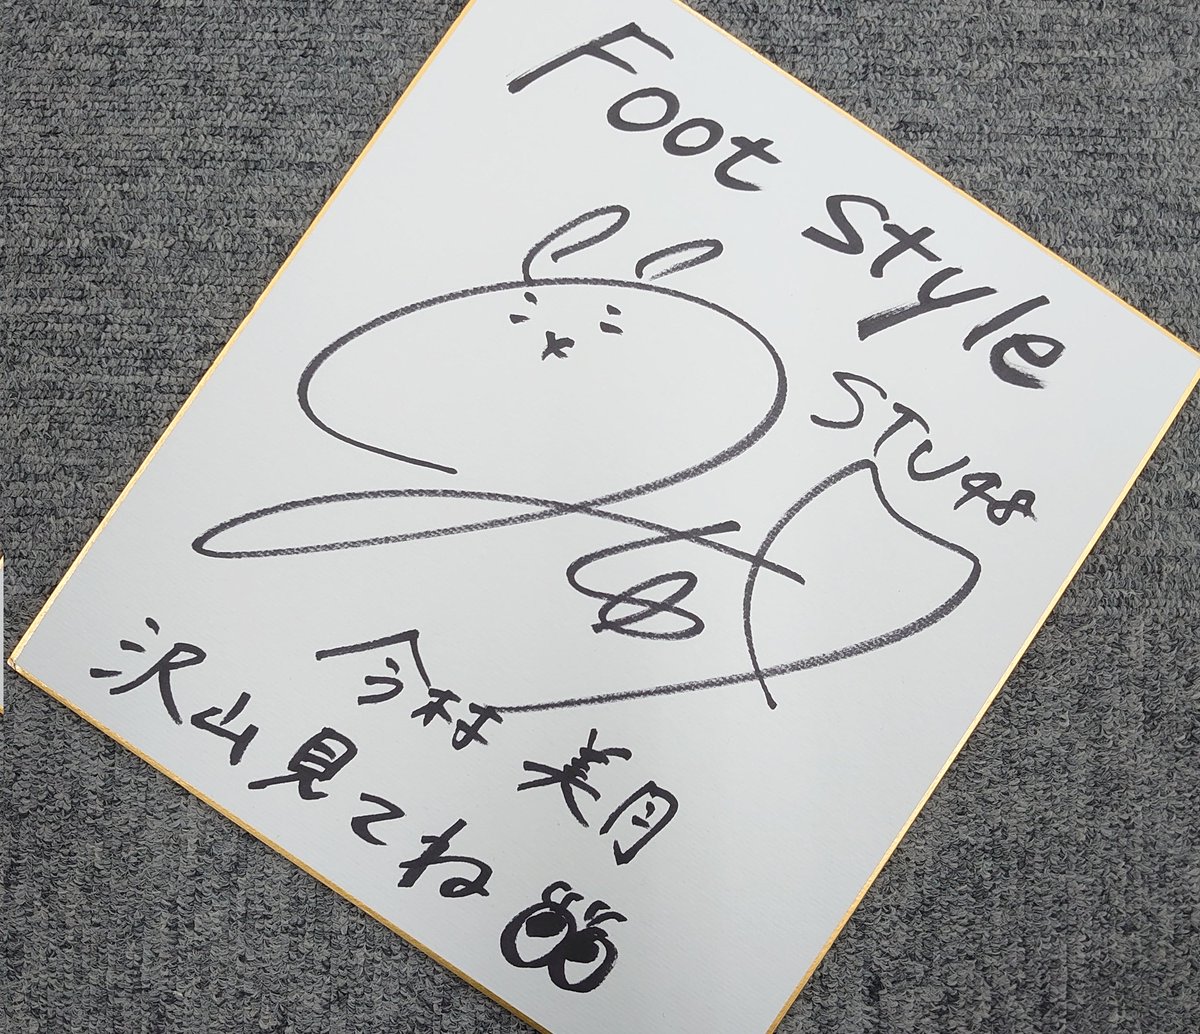 Foot Style
STU48
今村 美月
沢山見てね